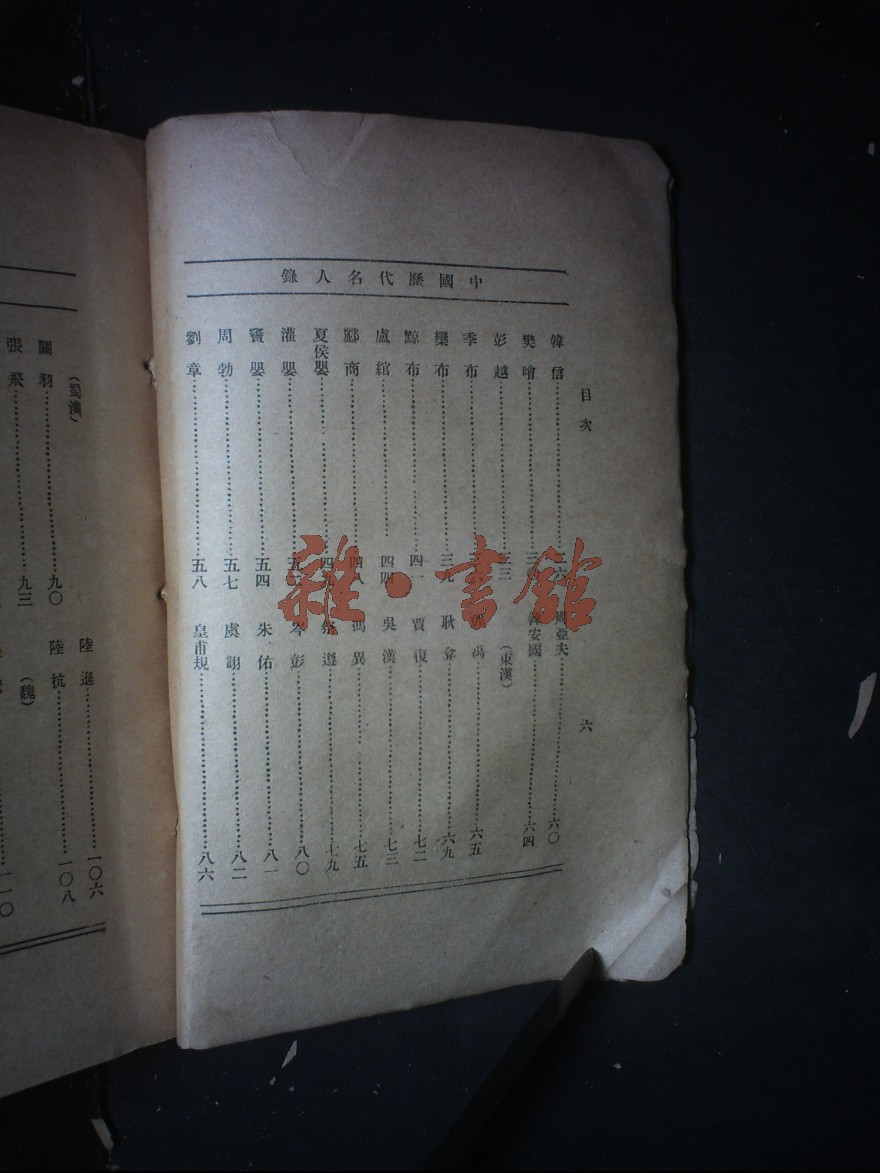 中國歷代名人錄
目次 六
韓信
樊噲
彭越
季布
欒布
黥布 四一
盧綰 四四
酈商
夏侯嬰
灌嬰
竇嬰 五四
周勃 五七
劉章 五八
周亞夫 六〇
韓安國 六四
(東漢)
六五
耿弇 六九
賈復 七二
吳漢 七三
馮異 七五
祭遵 七九
岑彭 八〇
朱佑 八一
虞詡 八二
皇甫規 八六
(蜀漢)
關羽 九〇
張飛 九三
陸遜 一〇六
陸抗 一〇八
(魏)
一一〇
雜·書館